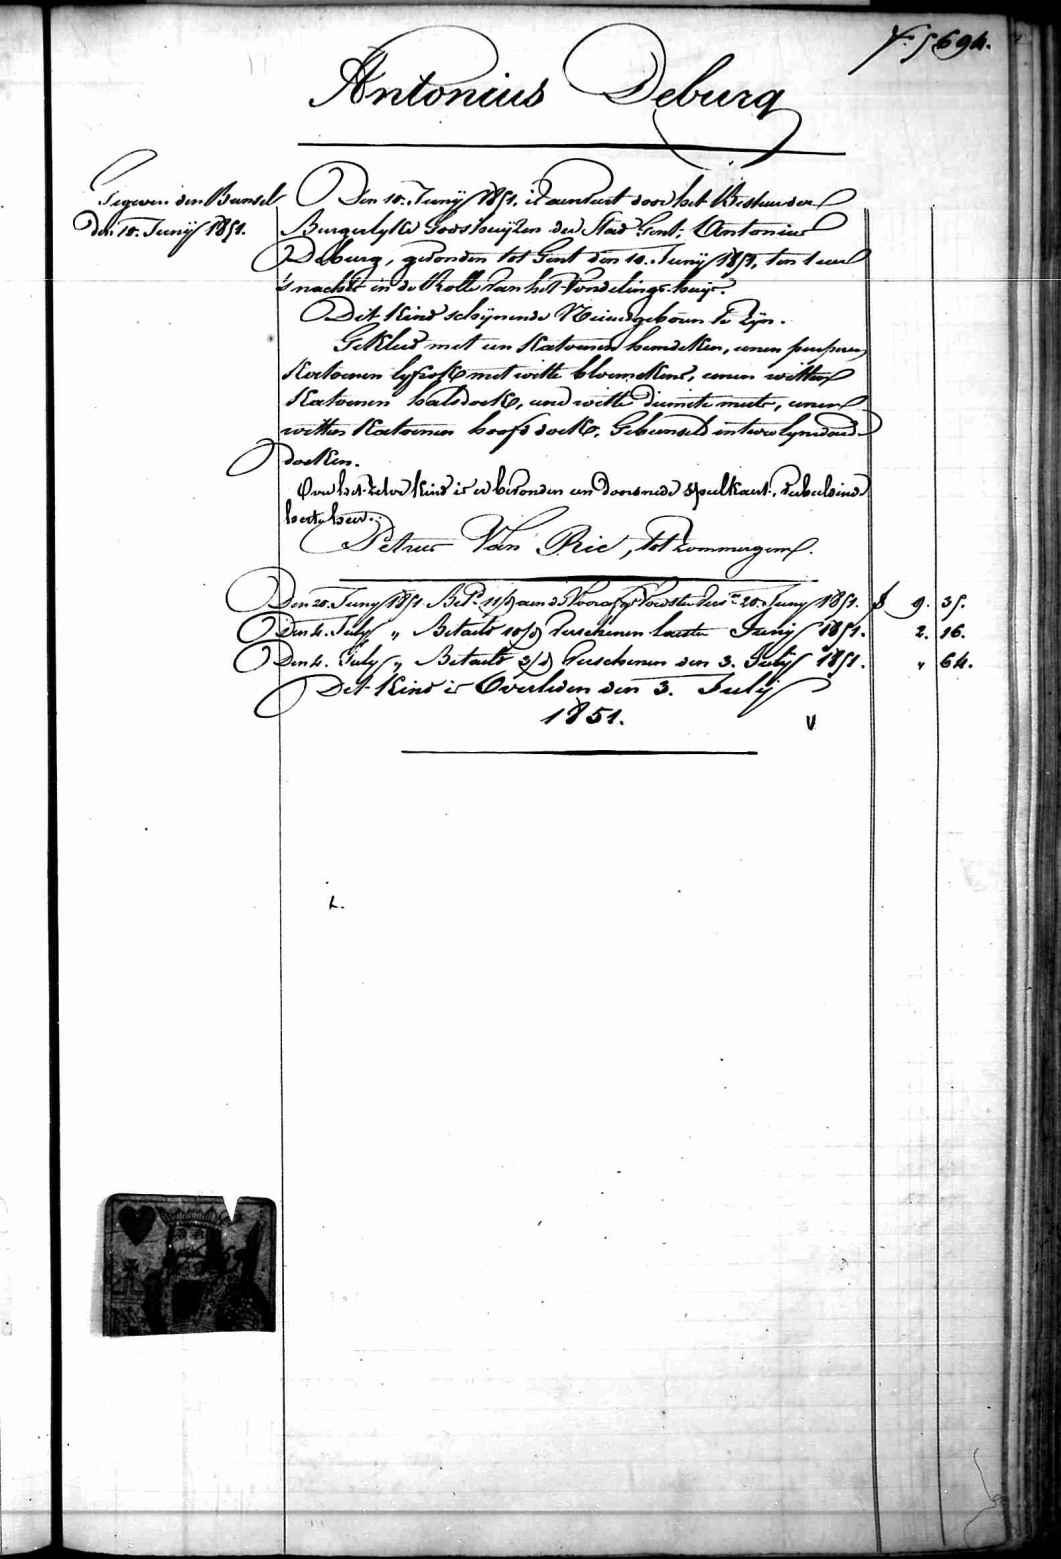 F. 5694.
Antonius Deburg
Gegeven den Bunsel
den 10. Junij 1851.
Den 10. Junij 1851. is aenveert door het Bestuur der
Burgerlyke Godshuijzen der Stad Gent; Antonius
Deburg, gevonden tot Gent den 10. Junij 1851, ten 1 uer
's nachts in de Rolle van het Vondelings-huijs.
Dit Kind schijnende Nieuwgeboren te zijn.
Gekleed met een Katoenen hemdeken, eenen purperen
Katoenen lyfrok met witte bloemekens, eenen witten
Katoenen halsdoek, eene witte diemite muts, eenen
witten Katoenen hoofddoek. Gebunseld in twee lynwaed
doeken.
Over het zelve Kind is er bevonden een doorsnede speelkaert,
herte heer.
Petrus Van Rie, tot Sommergem.
Den 20. Juny 1851. 20. Juny 1851. 9. 35.
Den 4. July " Betaeld 10/d Verschenen laeste Junij 1851. 2. 16.
Den 4. July " Betaeld 3/d Verschenen den 3. July 1851. " 64.
Dit Kind is Overleden den 3. Julij
1851.